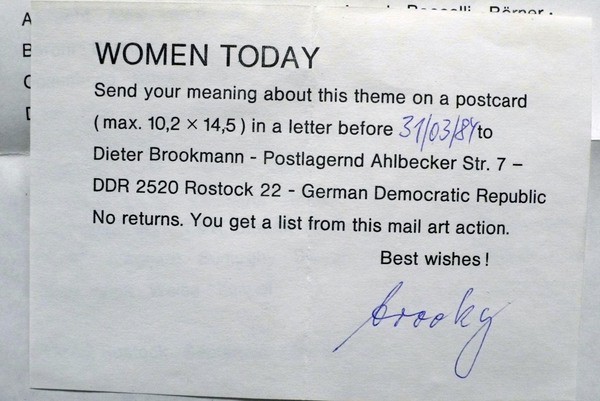 WOMEN TODAY
Send your meaning about this theme on a postcard
(max. 10,2 × 14,5) in a letter before 31/03/84 to
Dieter Brookmann - Postlagernd Ahlbecker Str. 7 –
DDR 2520 Rostock 22 - German Democratic Republic
No returns. You get a list from this mail art action.
Best wishes!
brooky